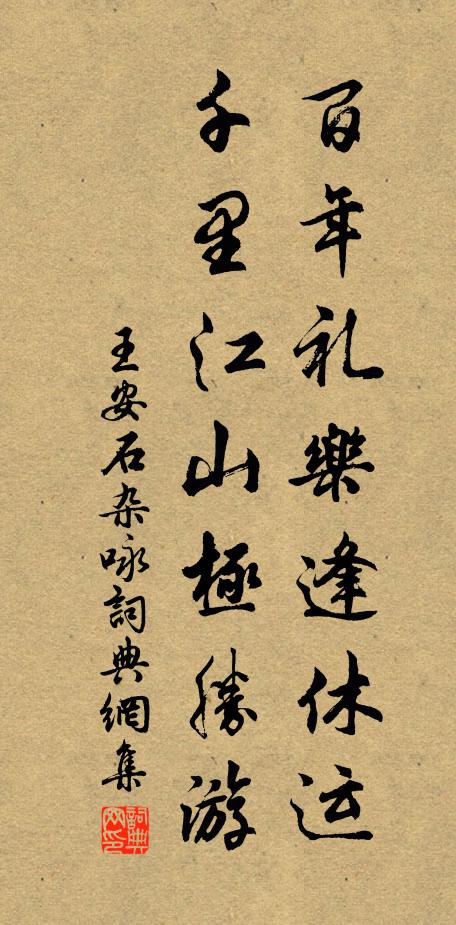 百年礼樂逢休运
千里江山極勝游
王安石杂咏詞典網集
詞典网印